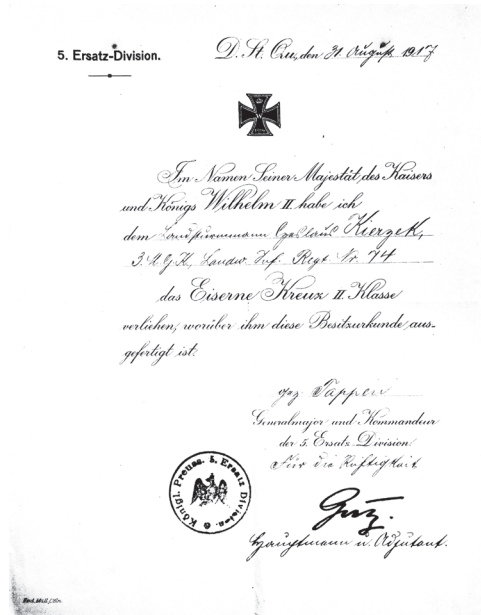 5. Ersatz-Division.
D. St. Qu., den 31 August 1917
Im Namen Seiner Majestät, des Kaisers
und Königs Wilhelm II. habe ich
dem Landsturmmann Czeslaus Kierzek,
3. M.G.K., Landw. Inf. Regt Nr. 74
das Eiserne Kreuz II. Klasse
verliehen, worüber ihm diese Besitzurkunde aus-
gefertigt ist:
gez Tappen
Generalmajor und Kommandeur
der 5. Ersatz-Division.
Für die Richtigkeit
Hauptmann u. Adjutant.
Königl. Preuss. 5. Ersatz Division.